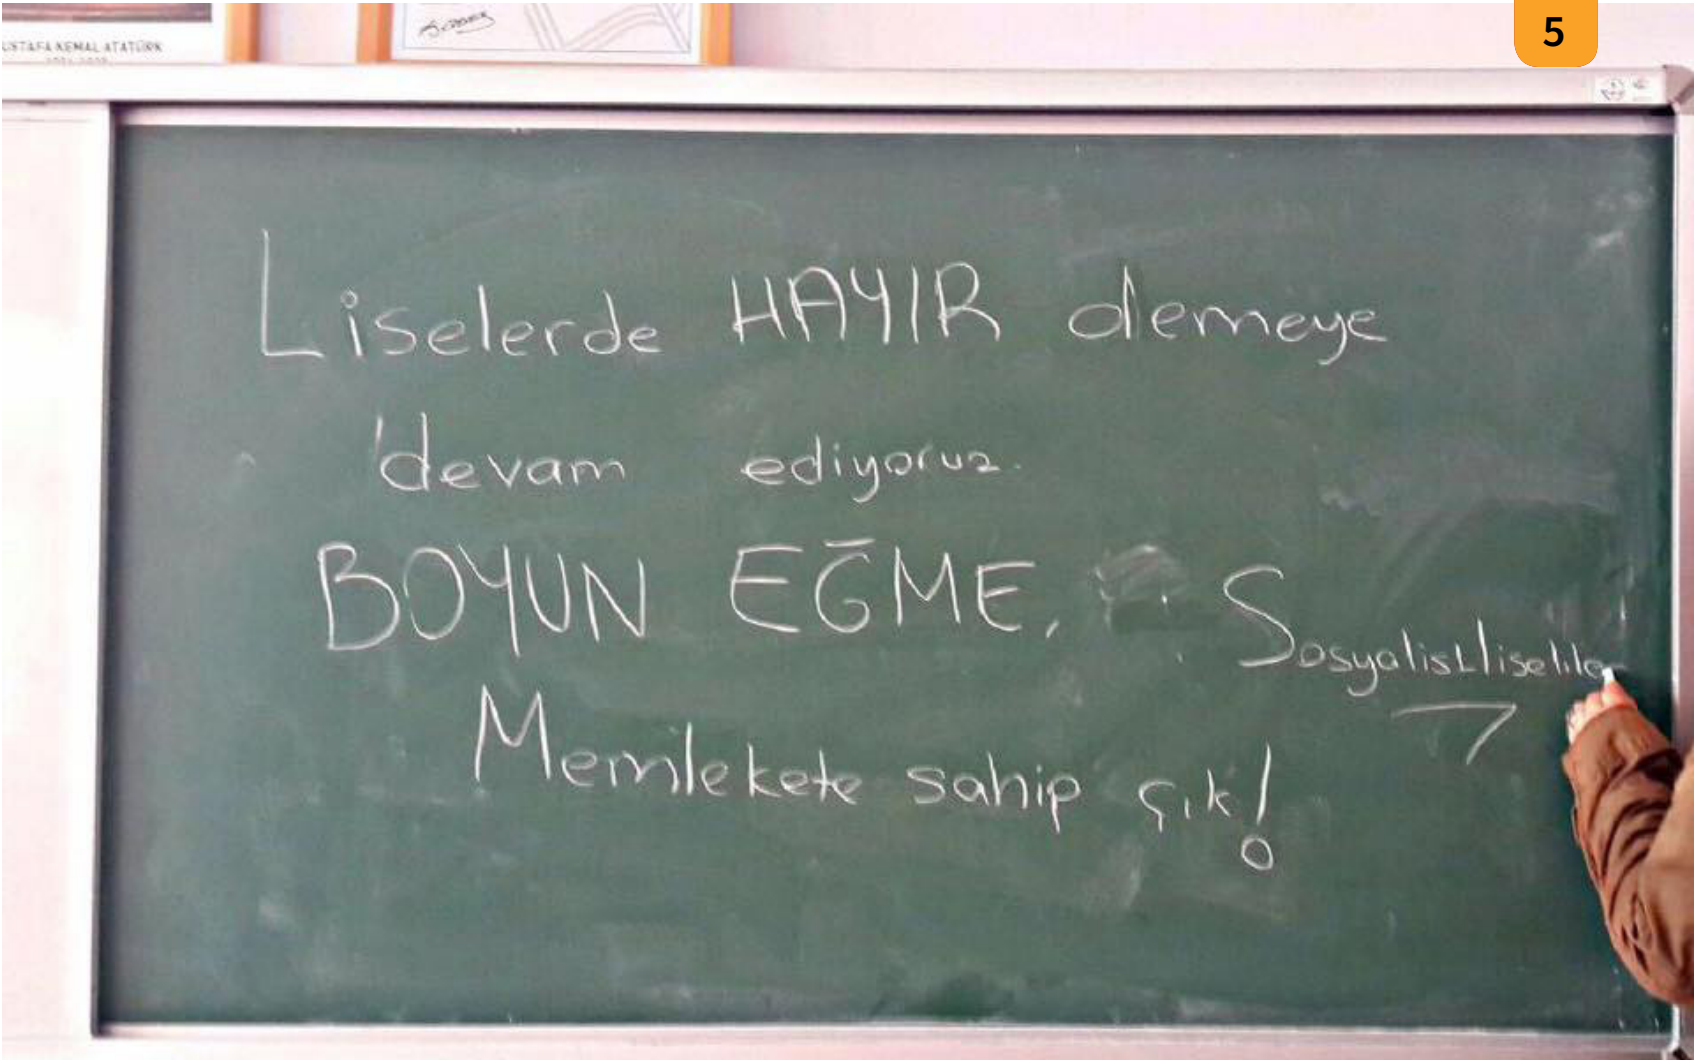 5
MUSTAFA KEMAL ATATÜRK
Liselerde HAYIR demeye
devam ediyoruz.
BOYUN EĞME,
Sosyalist liseliler
Memlekete sahip çık!